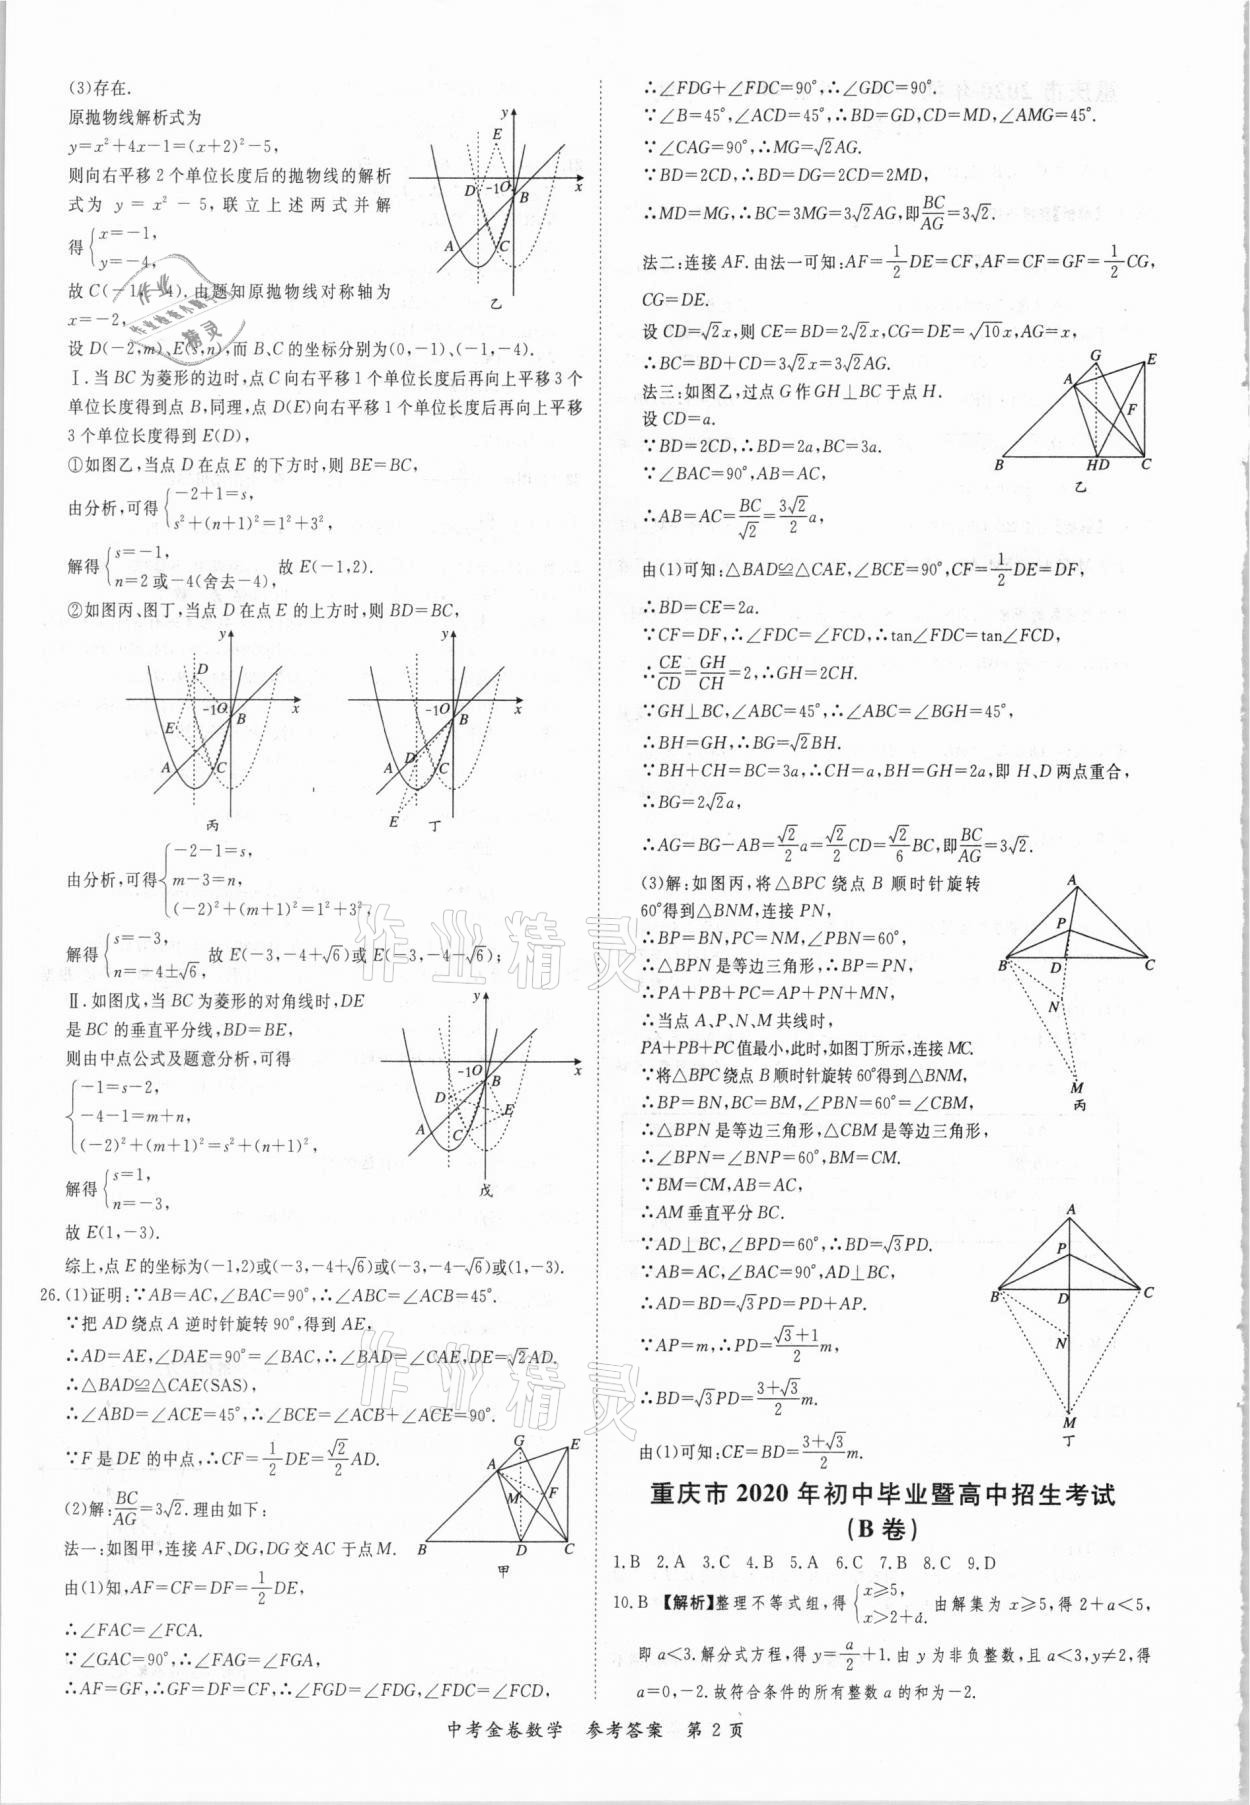 (3)存在.
原抛物线解析式为
y=x²+4x-1=(x+2)²-5,
则向右平移2个单位长度后的抛物线的解析
式为 y = x² - 5,联立上述两式并解
得{x=-1,
y=-4,
故C(-1,-4).由题知原抛物线对称轴为
x=-2,
设D(-2,m)、E(s,n),而B、C的坐标分别为(0,-1)、(-1,-4).
Ⅰ.当BC为菱形的边时,点C向右平移1个单位长度后再向上平移3个
单位长度得到点B,同理,点D(E)向右平移1个单位长度后再向上平移
3个单位长度得到E(D),
①如图乙,当点D在点E的下方时,则BE=BC,
由分析,可得{-2+1=s,
s²+(n+1)²=1²+3²,
解得{s=-1,
n=2或-4(舍去-4),故E(-1,2).
②如图丙、图丁,当点D在点E的上方时,则BD=BC,
丙
丁
由分析,可得{-2-1=s,
m-3=n,
(-2)²+(m+1)²=1²+3²,
解得{s=-3,
n=-4±√6,故E(-3,-4+√6)或E(-3,-4-√6);
Ⅱ.如图戊,当BC为菱形的对角线时,DE
是BC的垂直平分线,BD=BE,
则由中点公式及题意分析,可得
{-1=s-2,
-4-1=m+n,
(-2)²+(m+1)²=s²+(n+1)²,
解得{s=1,
n=-3,
故E(1,-3).
戊
综上,点E的坐标为(-1,2)或(-3,-4+√6)或(-3,-4-√6)或(1,-3).
26.(1)证明:∵AB=AC,∠BAC=90°,∴∠ABC=∠ACB=45°.
∵把AD绕点A逆时针旋转90°,得到AE,
∴AD=AE,∠DAE=90°=∠BAC,∴∠BAD=∠CAE,DE=√2AD.
∴△BAD≌△CAE(SAS),
∴∠ABD=∠ACE=45°,∴∠BCE=∠ACB+∠ACE=90°.
∵F是DE的中点,∴CF=1/2DE=√2/2AD.
(2)解:BC/AG=3√2.理由如下:
法一:如图甲,连接AF、DG,DG交AC于点M.
由(1)知,AF=CF=DF=1/2DE,
甲
∴∠FAC=∠FCA.
∵∠GAC=90°,∴∠FAG=∠FGA,
∴AF=GF,∴GF=DF=CF,∴∠FGD=∠FDG,∠FDC=∠FCD,
∴∠FDG+∠FDC=90°,∴∠GDC=90°.
∵∠B=45°,∠ACD=45°,∴BD=GD,CD=MD,∠AMG=45°.
∵∠CAG=90°,∴MG=√2AG.
∵BD=2CD,∴BD=DG=2CD=2MD,
∴MD=MG,∴BC=3MG=3√2AG,即BC/AG=3√2.
法二:连接AF.由法一可知:AF=1/2DE=CF,AF=CF=GF=1/2CG,
CG=DE.
设CD=√2x,则CE=BD=2√2x,CG=DE=√10x,AG=x,
∴BC=BD+CD=3√2x=3√2AG.
法三:如图乙,过点G作GH⊥BC于点H.
设CD=a.
∵BD=2CD,∴BD=2a,BC=3a.
∵∠BAC=90°,AB=AC,
乙
∴AB=AC=BC/√2=3√2/2a,
由(1)可知:△BAD≌△CAE,∠BCE=90°,CF=1/2DE=DF,
∴BD=CE=2a.
∵CF=DF,∴∠FDC=∠FCD,∴tan∠FDC=tan∠FCD,
∴CE/CD=GH/CH=2,∴GH=2CH.
∵GH⊥BC,∠ABC=45°,∴∠ABC=∠BGH=45°,
∴BH=GH,∴BG=√2BH.
∵BH+CH=BC=3a,∴CH=a,BH=GH=2a,即H、D两点重合,
∴BG=2√2a,
∴AG=BG-AB=√2/2a=√2/2CD=√2/6BC,即BC/AG=3√2.
(3)解:如图丙,将△BPC绕点B顺时针旋转
60°得到△BNM,连接PN,
∴BP=BN,PC=NM,∠PBN=60°,
∴△BPN是等边三角形,∴BP=PN,
∴PA+PB+PC=AP+PN+MN,
∴当点A、P、N、M共线时,
PA+PB+PC值最小,此时,如图丁所示,连接MC.
∵将△BPC绕点B顺时针旋转60°得到△BNM,
∴BP=BN,BC=BM,∠PBN=60°=∠CBM,
丙
∴△BPN是等边三角形,△CBM是等边三角形,
∴∠BPN=∠BNP=60°,BM=CM.
∵BM=CM,AB=AC,
∴AM垂直平分BC.
∵AD⊥BC,∠BPD=60°,∴BD=√3PD.
∵AB=AC,∠BAC=90°,AD⊥BC,
∴AD=BD=√3PD=PD+AP.
∵AP=m,∴PD=(√3+1)/2m,
∴BD=√3PD=(3+√3)/2m.
丁
由(1)可知:CE=BD=(3+√3)/2m.
重庆市2020年初中毕业暨高中招生考试
(B卷)
1.B 2.A 3.C 4.B 5.A 6.C 7.B 8.C 9.D
10.B 【解析】整理不等式组,得{x≥5,
x>2+a.由解集为x≥5,得2+a<5,
即a<3.解分式方程,得y=a/2+1.由y为非负整数,且a<3,y≠2,得
a=0,-2.故符合条件的所有整数a的和为-2.
中考金卷数学 参考答案 第2页
作业精灵
作业精灵